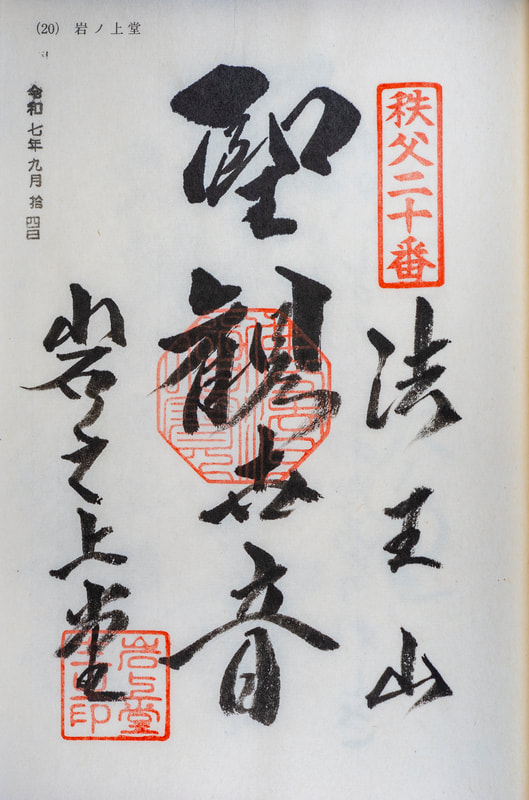 (20) 岩ノ上堂
秩父二十番
法王山
聖観世音
岩之上堂
令和七年九月拾四日
岩上堂